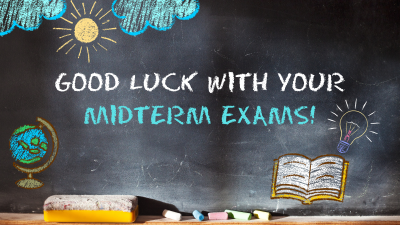 GOOD LUCK WITH YOUR
MIDTERM EXAMS!